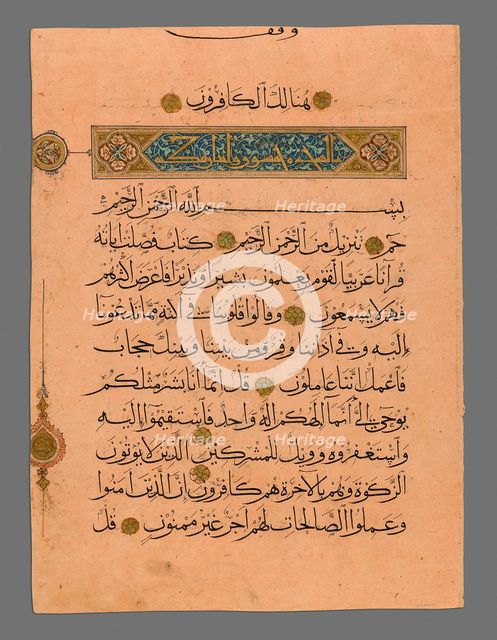 وقف
هنالك الكافرون
بسم الله الرحمن الرحيم
حم تنزيل من الرحمن الرحيم كتاب فصلت آياته
قرآنا عربيا لقوم يعلمون بشيرا ونذيرا فأعرض أكثرهم
فهم لا يسمعون وقالوا قلوبنا في أكنة مما تدعونا
إليه وفي آذاننا وقر ومن بيننا وبينك حجاب
فاعمل إننا عاملون قل إنما أنا بشر مثلكم
يوحى إلي أنما إلهكم إله واحد فاستقيموا إليه
واستغفروه وويل للمشركين الذين لا يؤتون
الزكوة وهم بالآخرة هم كافرون إن الذين آمنوا
وعملوا الصالحات لهم أجر غير ممنون قل
Heritage
Heritage
Heritage
Heritage
Heritage
Heritage
Heritage
Heritage
©